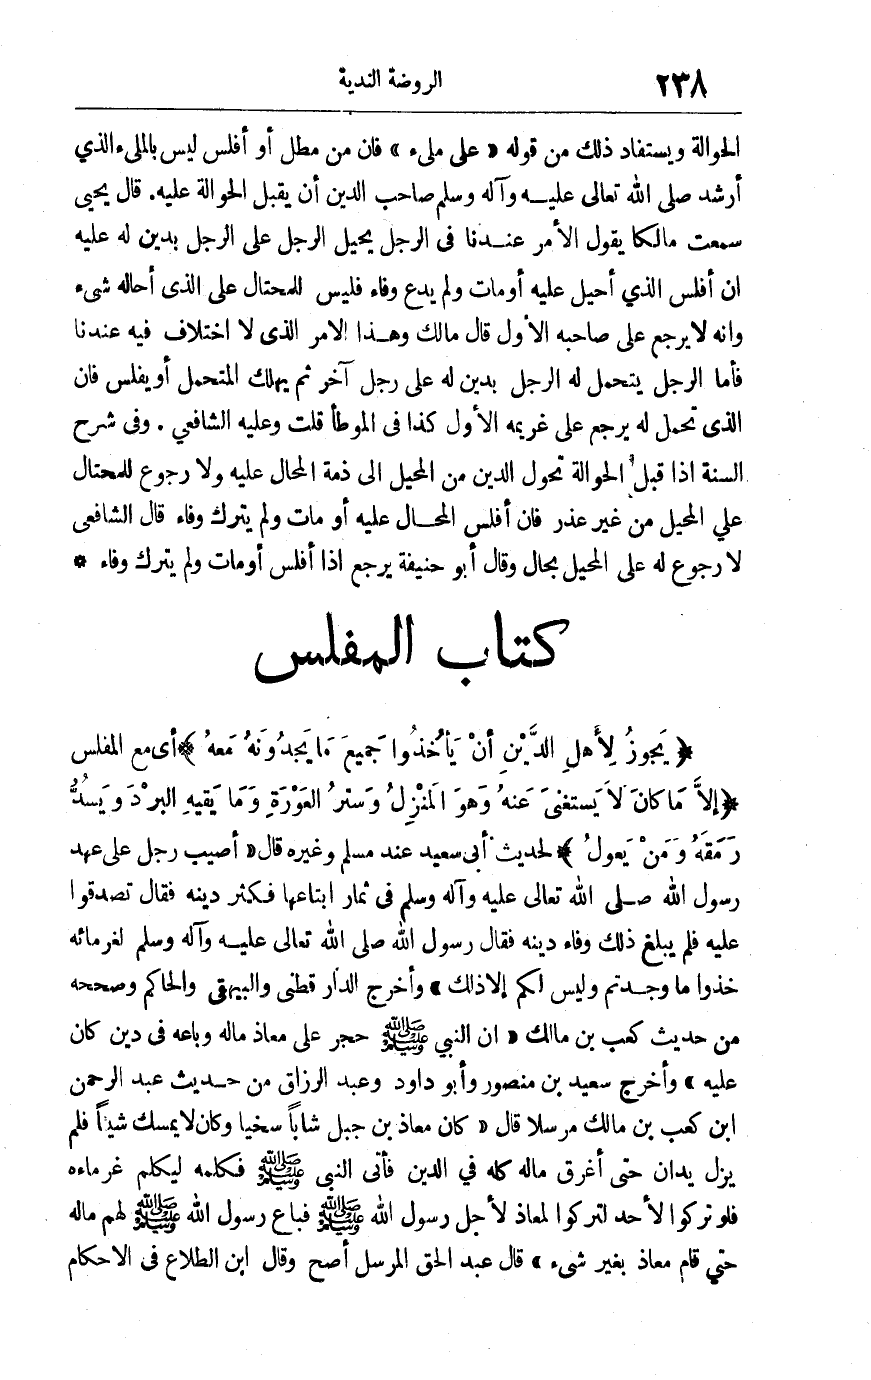 ٢٣٨ الروضة الندية
الحوالة ويستفاد ذلك من قوله « على مليء » فان من مطل أو أفلس ليس بالمليء الذي
أرشد صلى الله تعالى عليـــه وآله وسلم صاحب الدين أن يقبل الحوالة عليه. قال يحيى
سمعت مالكا يقول الأمر عنـــدنا فى الرجل يحيل الرجل على الرجل بدين له عليه
ان أفلس الذي أحيل عليه أومات ولم يدع وفاء فليس للمحتال على الذى أحاله شىء
وانه لا يرجع على صاحبه الأول قال مالك وهـــذا الامر الذى لا اختلاف فيه عندنا
فأما الرجل يتحمل له الرجل بدين له على رجل آخر ثم يهلك المتحمل أو يفلس فان
الذى تحمل له يرجع على غريمه الأول كذا فى الموطأ قلت وعليه الشافعي . وفى شرح
السنة اذا قبل الحوالة تحول الدين من المحيل الى ذمة المحال عليه ولا رجوع للمحتال
علي المحيل من غير عذر فان أفلس المحـــال عليه أو مات ولم يترك وفاء قال الشافعى
لا رجوع له على المحيل بحال وقال أبو حنيفة يرجع اذا أفلس أومات ولم يترك وفاء *
كتاب المفلس
﴿ يَجوزُ لِأَهلِ الدَّيْنِ أنْ يَأخُذُوا جَميعَ مَا يَجدُونَهُ مَعهُ ﴾ أى مع المفلس
﴿ إلاَّ مَا كانَ لاَ يَستغنىَ عَنهُ وَهوَ المَنْزِلُ وَسترُ العَوْرَةِ وَمَا يَقيهِ البرْدَ وَيَسدُّ
رَمَقَهُ وَمَنْ يَعولُ ﴾ لحديث أبى سعيد عند مسلم وغيره قال « أصيب رجل على عهد
رسول الله صـــلى الله تعالى عليه وآله وسلم فى ثمار ابتاعها فكثر دينه فقال تصدقوا
عليه فلم يبلغ ذلك وفاء دينه فقال رسول الله صلى الله تعالى عليـــه وآله وسلم لغرمائه
خذوا ما وجـــدتم وليس لكم إلا ذلك » وأخرج الدار قطنى والبيهقى والحاكم وصححه
من حديث كعب بن مالك « ان النبي ﷺ حجر على معاذ ماله وباعه فى دين كان
عليه » وأخرج سعيد بن منصور وأبو داود وعبد الرزاق من حـــديث عبد الرحمن
ابن كعب بن مالك مرسلا قال « كان معاذ بن جبل شاباً سخيا وكان لا يمسك شيئاً فلم
يزل يدان حتى أغرق ماله كله في الدين فأتى النبى ﷺ فكلمه ليكلم غرماءه
فلو تركوا لأحد لتركوا لمعاذ لأجل رسول الله ﷺ فباع رسول الله ﷺ لهم ماله
حتي قام معاذ بغير شىء » قال عبد الحق المرسل أصح وقال ابن الطلاع فى الاحكام